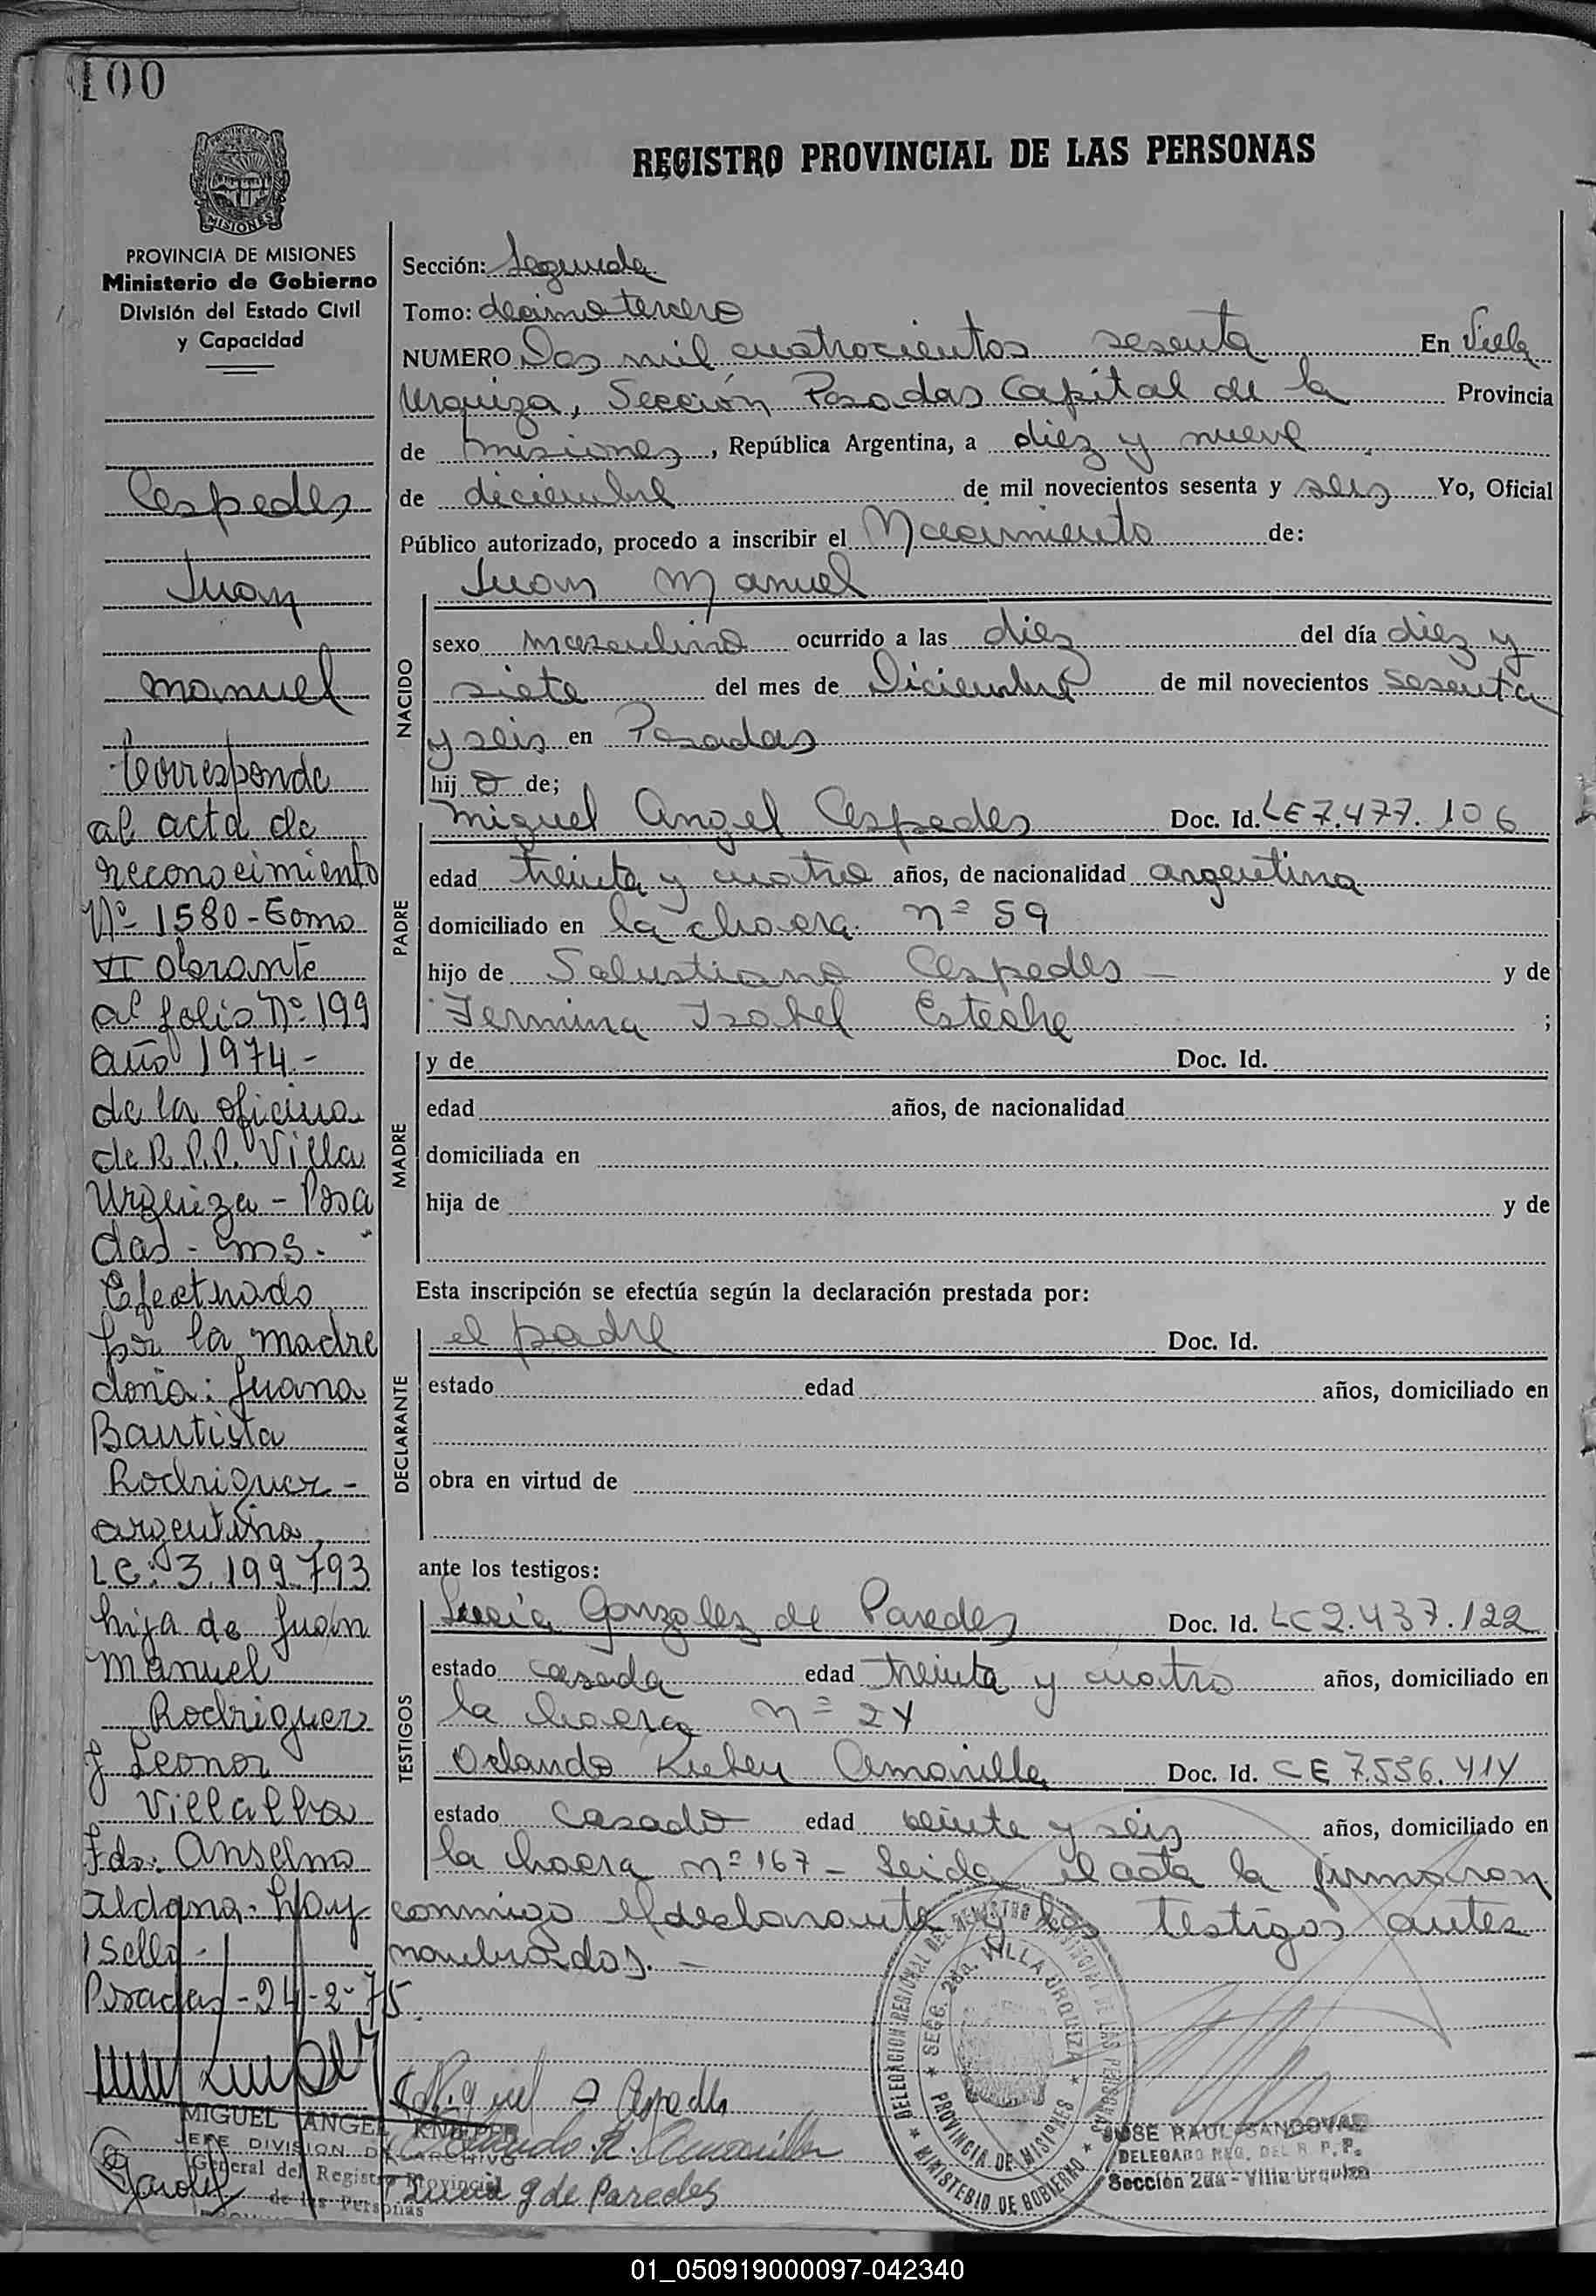 100
PROVINCIA DE MISIONES
Ministerio de Gobierno
División del Estado Civil
y Capacidad
Cespedes
Juan
Manuel
Corresponde
al acta de
reconocimiento
Nº 1580 - Tomo
VI obrante
al folio Nº 199
año 1974.-
de la oficina
de R.P.P. Villa
Urquiza - Posa
das - Ms.-
Efectuado
por la madre
doña: Juana
Bautista
Rodriguez -
argentina,
LC: 3.199.793
hija de Juan
Manuel
Rodriguez
y Leonor
Villalba
Fdo: Anselmo
Aldana. Hay
1 sello -
Posadas - 24 - 2 - 75
MIGUEL ANGEL KNOEPER
JEFE DIVISION DE ARCHIVO
General del Registro Provincial
de las Personas
REGISTRO PROVINCIAL DE LAS PERSONAS
Sección: Segunda
Tomo: decimo tercero
NUMERO Dos mil cuatrocientos sesenta En Villa
Urquiza, Sección Posadas Capital de la Provincia
de Misiones, República Argentina, a diez y nueve
de diciembre de mil novecientos sesenta y seis Yo, Oficial
Público autorizado, procedo a inscribir el Nacimiento de:
NACIDO
Juan Manuel
sexo masculino ocurrido a las diez del día diez y
siete del mes de Diciembre de mil novecientos sesenta
y seis en Posadas
hijo de;
PADRE
Miguel Angel Cespedes Doc. Id. LE 7.477.106
edad treinta y cuatro años, de nacionalidad argentina
domiciliado en la chacra nº 59
hijo de Salustiano Cespedes y de
Fermina Isabel Esteche ;
MADRE
y de Doc. Id.
edad años, de nacionalidad
domiciliada en
hija de y de
Esta inscripción se efectúa según la declaración prestada por:
DECLARANTE
el padre Doc. Id.
estado edad años, domiciliado en
obra en virtud de
ante los testigos:
TESTIGOS
Lucia Gonzalez de Paredes Doc. Id. LC 2.437.122
estado casada edad treinta y cuatro años, domiciliado en
la chacra nº 24
Orlando Ruben Amarilla Doc. Id. CE 7.536.414
estado casado edad veinte y seis años, domiciliado en
la chacra nº 167 - Leida el acta la firmaron
conmigo el declarante y los testigos antes
nombrados. -
Miguel A Cespedes
Orlando R. Amarilla
Lucia G de Paredes
DELEGACION REGIONAL DEL REGISTRO PROVINCIAL DE LAS PERSONAS
SECC. 2da. VILLA URQUIZA
PROVINCIA DE MISIONES
MINISTERIO DE GOBIERNO
JOSE RAUL SANDOVAL
DELEGADO REG. DEL R. P. P.
Sección 2da - Villa Urquiza
01_050919000097-042340